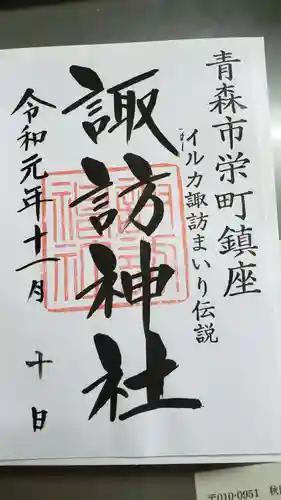 青森市栄町鎮座
イルカ諏訪まいり伝説
諏訪神社
令和元年十一月十日
〒010-0951